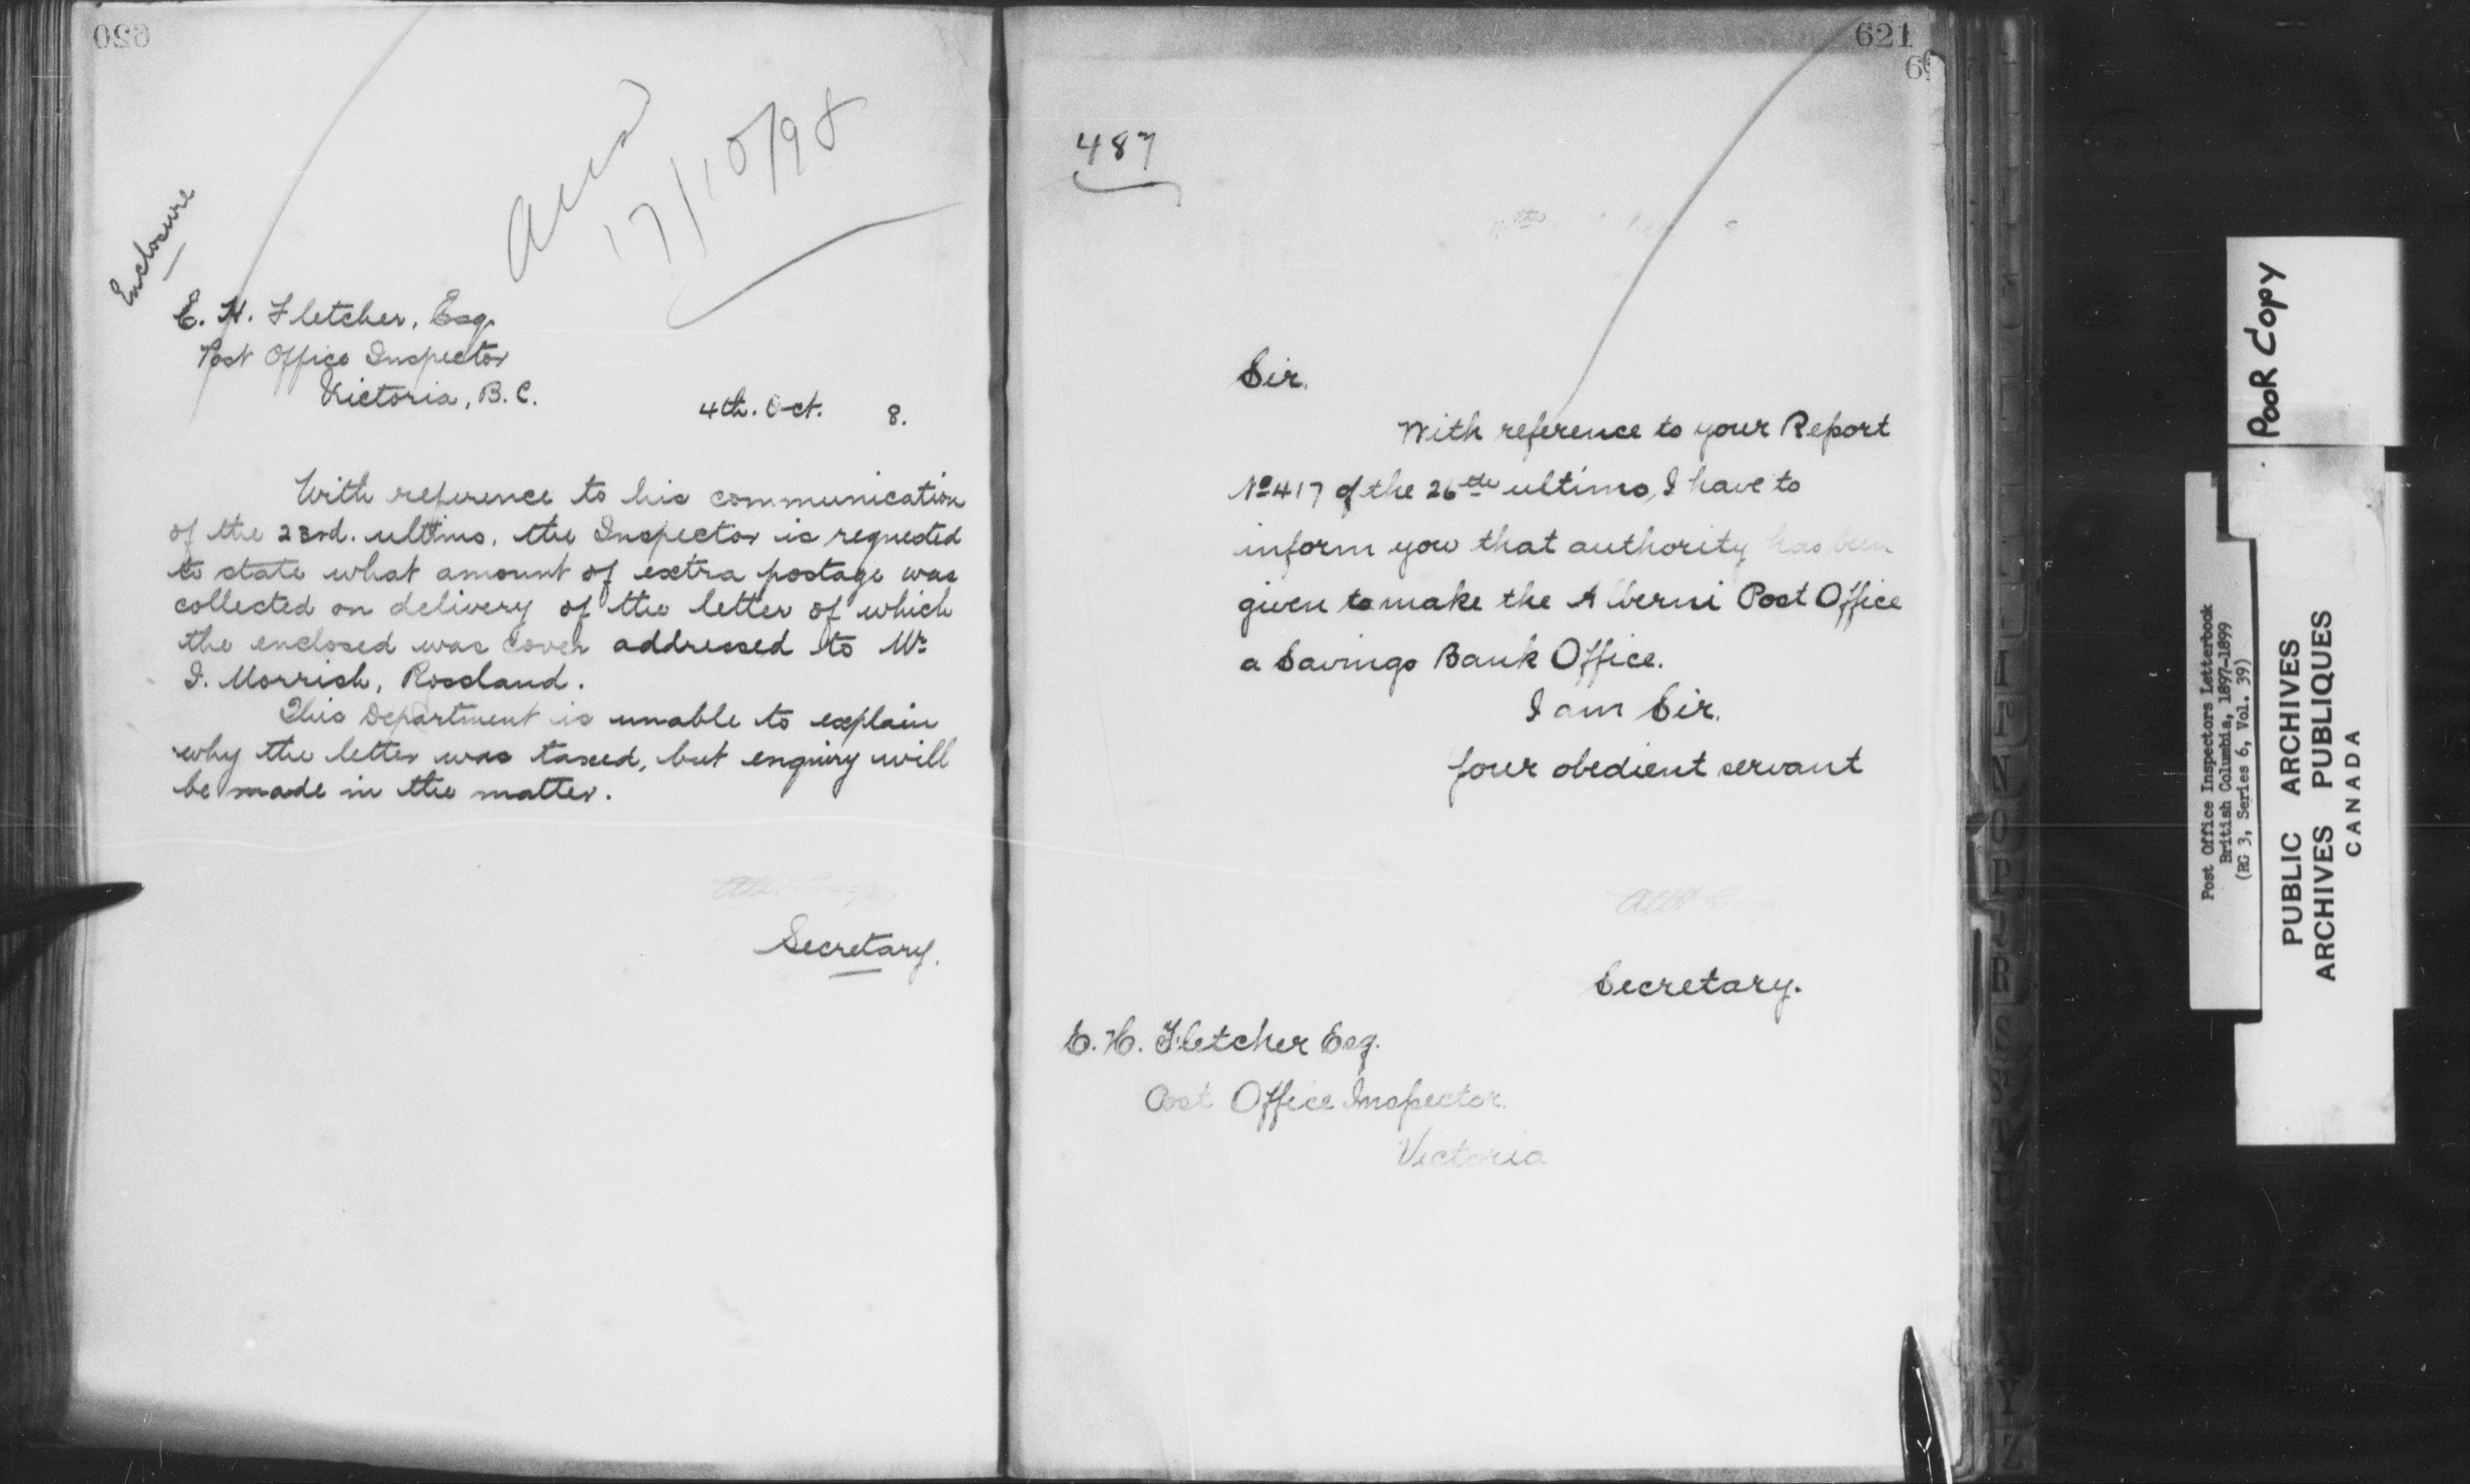 620
Ansd
17/10/98
Enclosure
E. H. Fletcher, Esq.
Post Office Inspector
Victoria, B.C.
4th. Oct. 8.
With reference to his communication
of the 23rd. ultimo, the Inspector is requested
to state what amount of extra postage was
collected on delivery of the letter of which
the enclosed was cover addressed to Mr.
I. Morrish, Rossland.
This Department is unable to explain
why the letter was taxed, but enquiry will
be made in the matter.
Secretary.
621
487
Sir,
With reference to your Report
No 417 of the 26th ultimo, I have to
inform you that authority has been
given to make the Alberni Post Office
a Savings Bank Office.
I am Sir,
Your obedient servant
Secretary.
E. H. Fletcher Esq.
Post Office Inspector
Victoria
PooR Copy
Post Office Inspectors Letterbook
British Columbia, 1897-1899
(RG 3, Series 6, Vol. 39)
PUBLIC ARCHIVES
ARCHIVES PUBLIQUES
CANADA